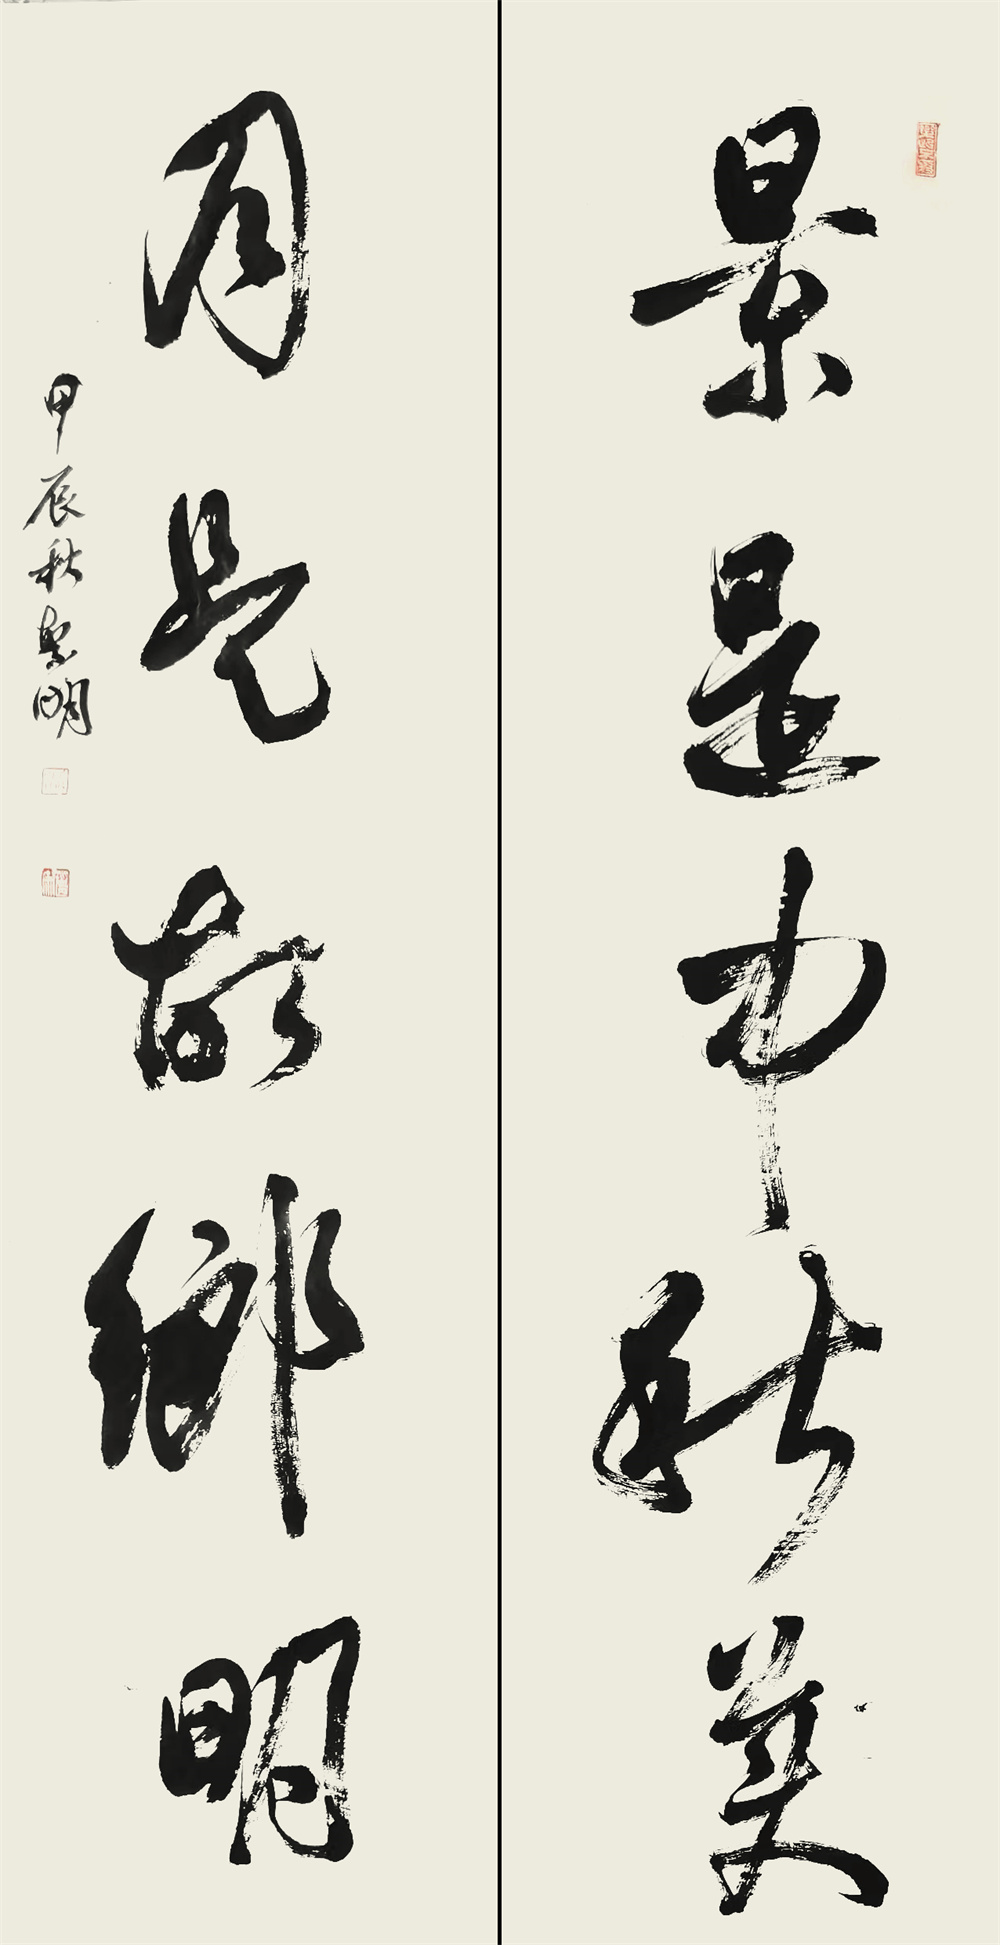 景是中秋美
月是故鄉明
甲辰秋黎明